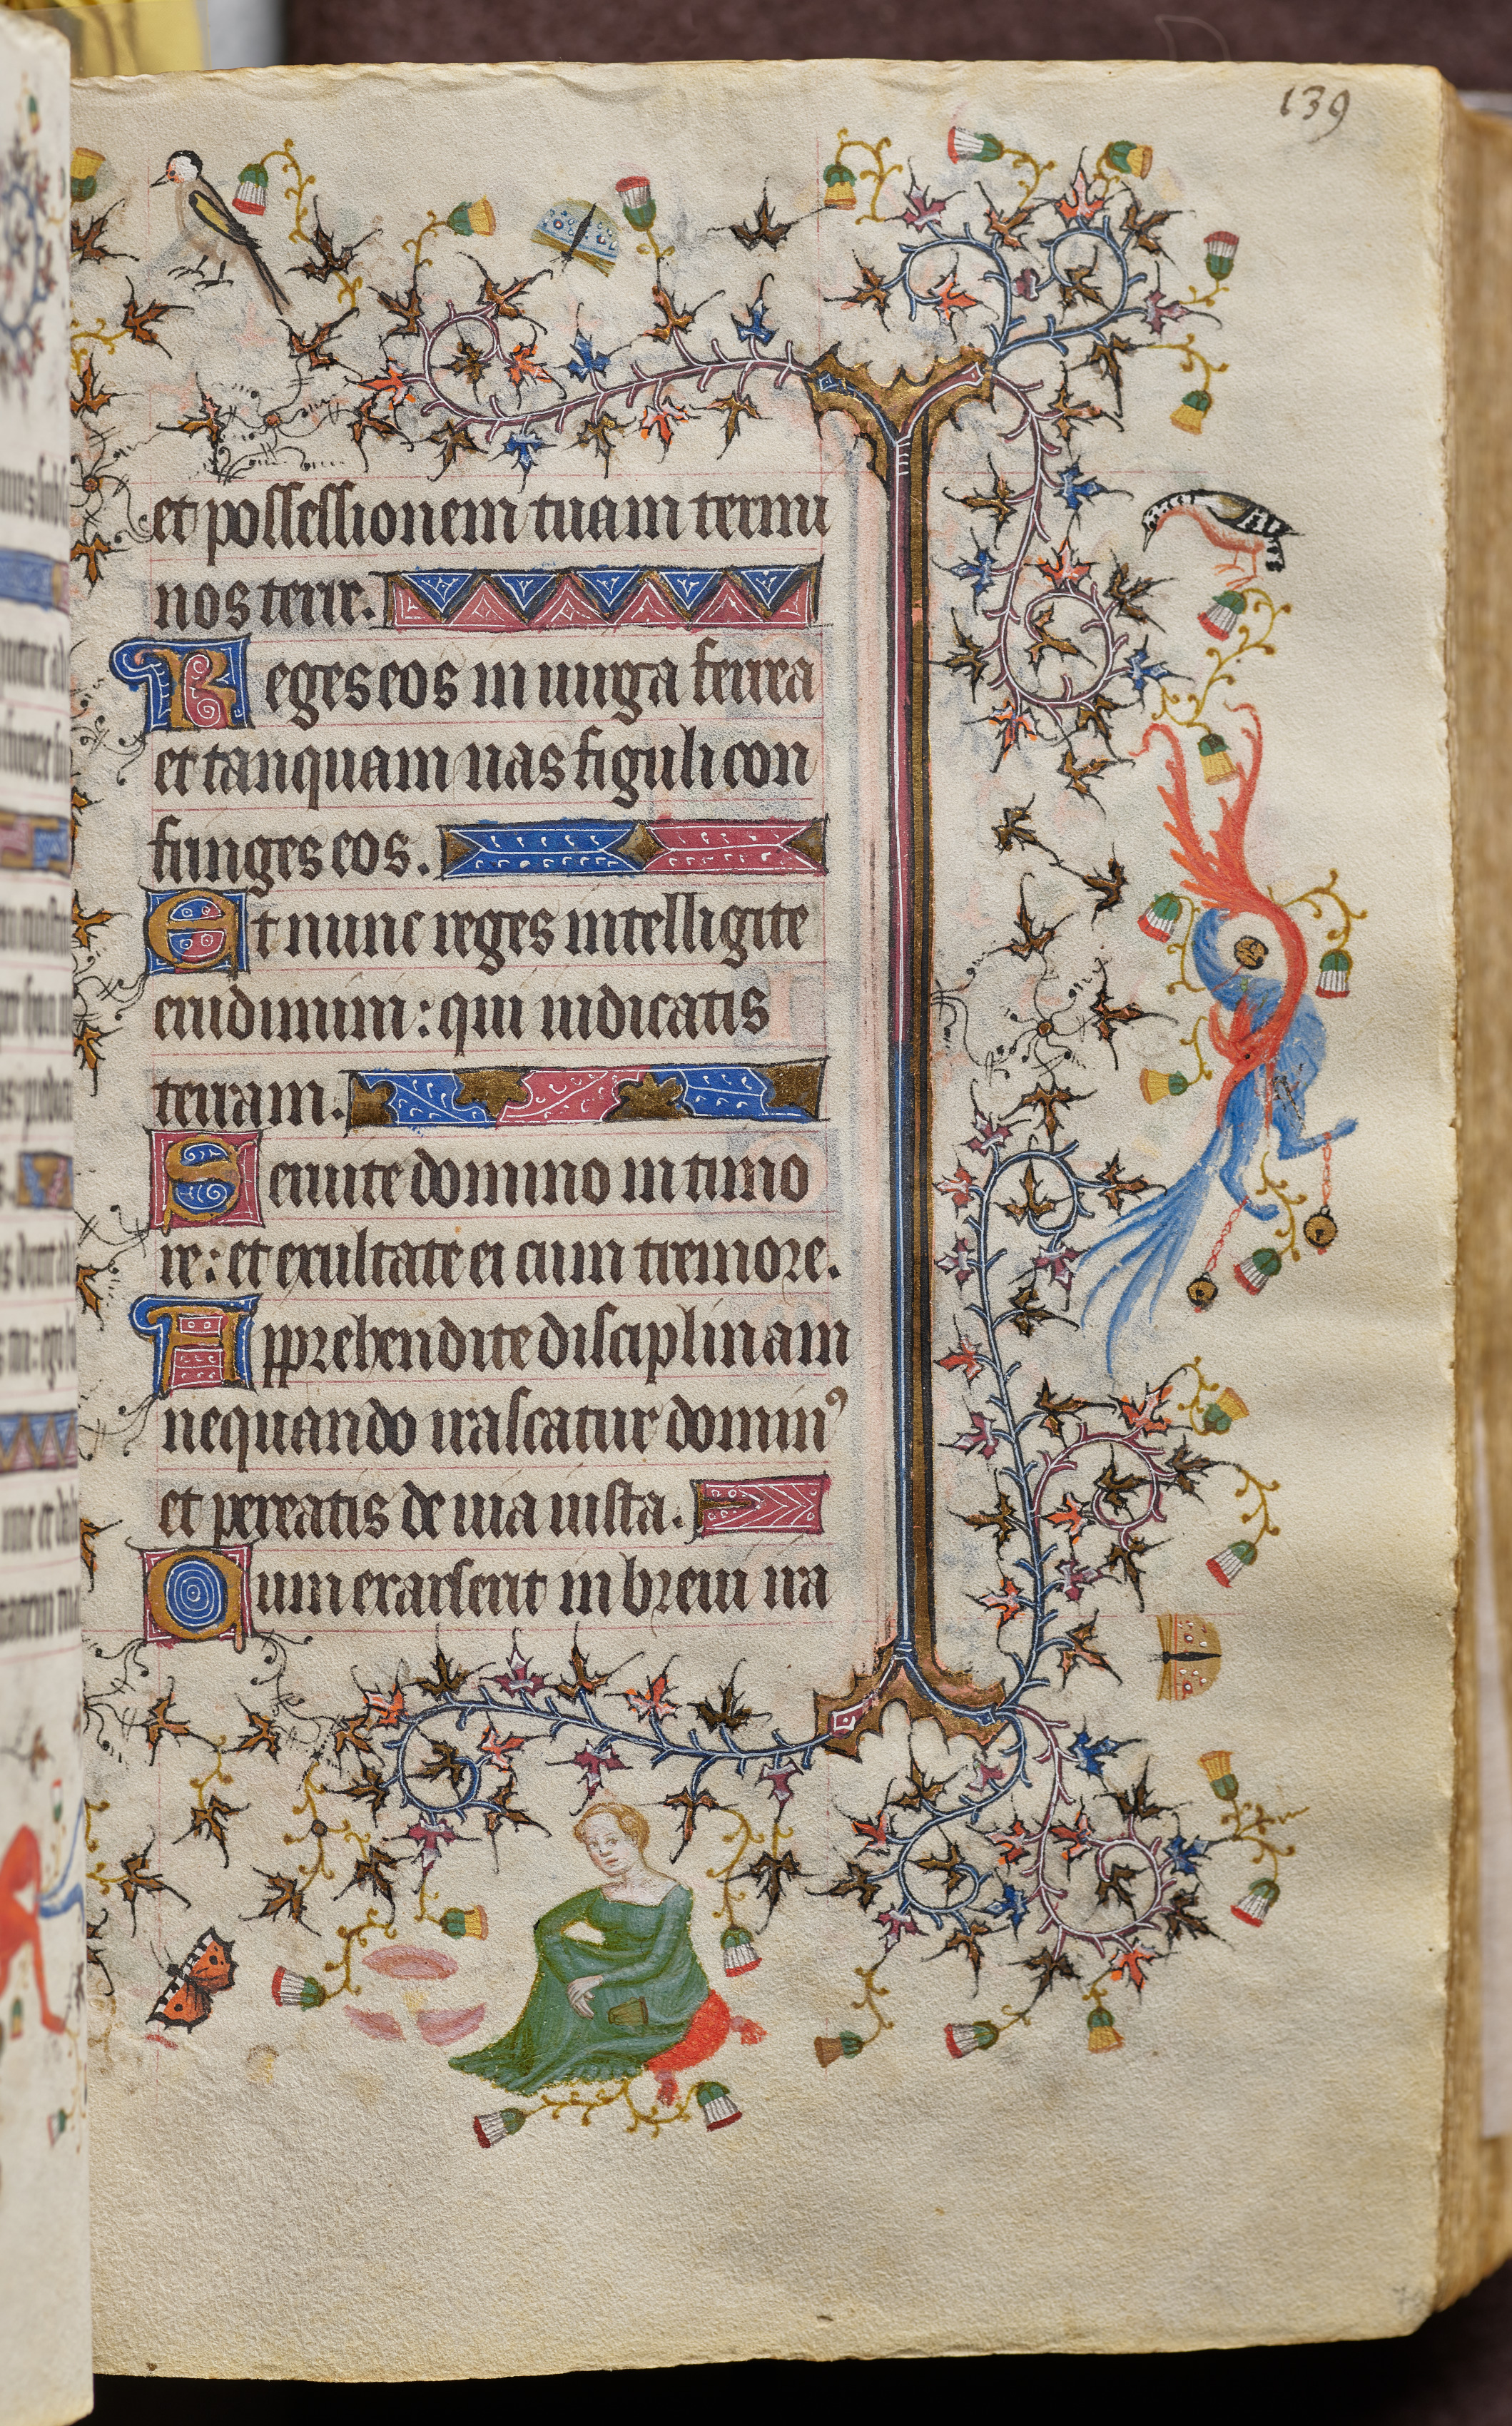 139
et possessionem tuam termi
nos terre.
Reges eos in uirga ferrea
et tanquam uas figuli con
fringes eos.
Et nunc reges intelligite
erudimini: qui iudicatis
terram.
Seruite domino in timo
re: et exultate ei cum tremore.
Apprehendite disciplinam
nequando irascatur dominꝰ
et pereatis de uia iusta.
Cum exarserit in breui ira